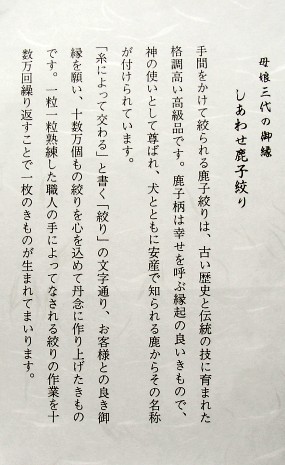 母娘三代の御縁
しあわせ鹿子絞り
手間をかけて絞られる鹿子絞りは、古い歴史と伝統の技に育まれた
格調高い高級品です。鹿子柄は幸せを呼ぶ縁起の良いきもので、
神の使いとして尊ばれ、犬とともに安産で知られる鹿からその名称
が付けられています。
「糸によって交わる」と書く「絞り」の文字通り、お客様との良き御
縁を願い、十数万個もの絞りを心を込めて丹念に作り上げたきもの
です。一粒一粒熟練した職人の手によってなされる絞りの作業を十
数万回繰り返すことで一枚のきものが生まれてまいります。